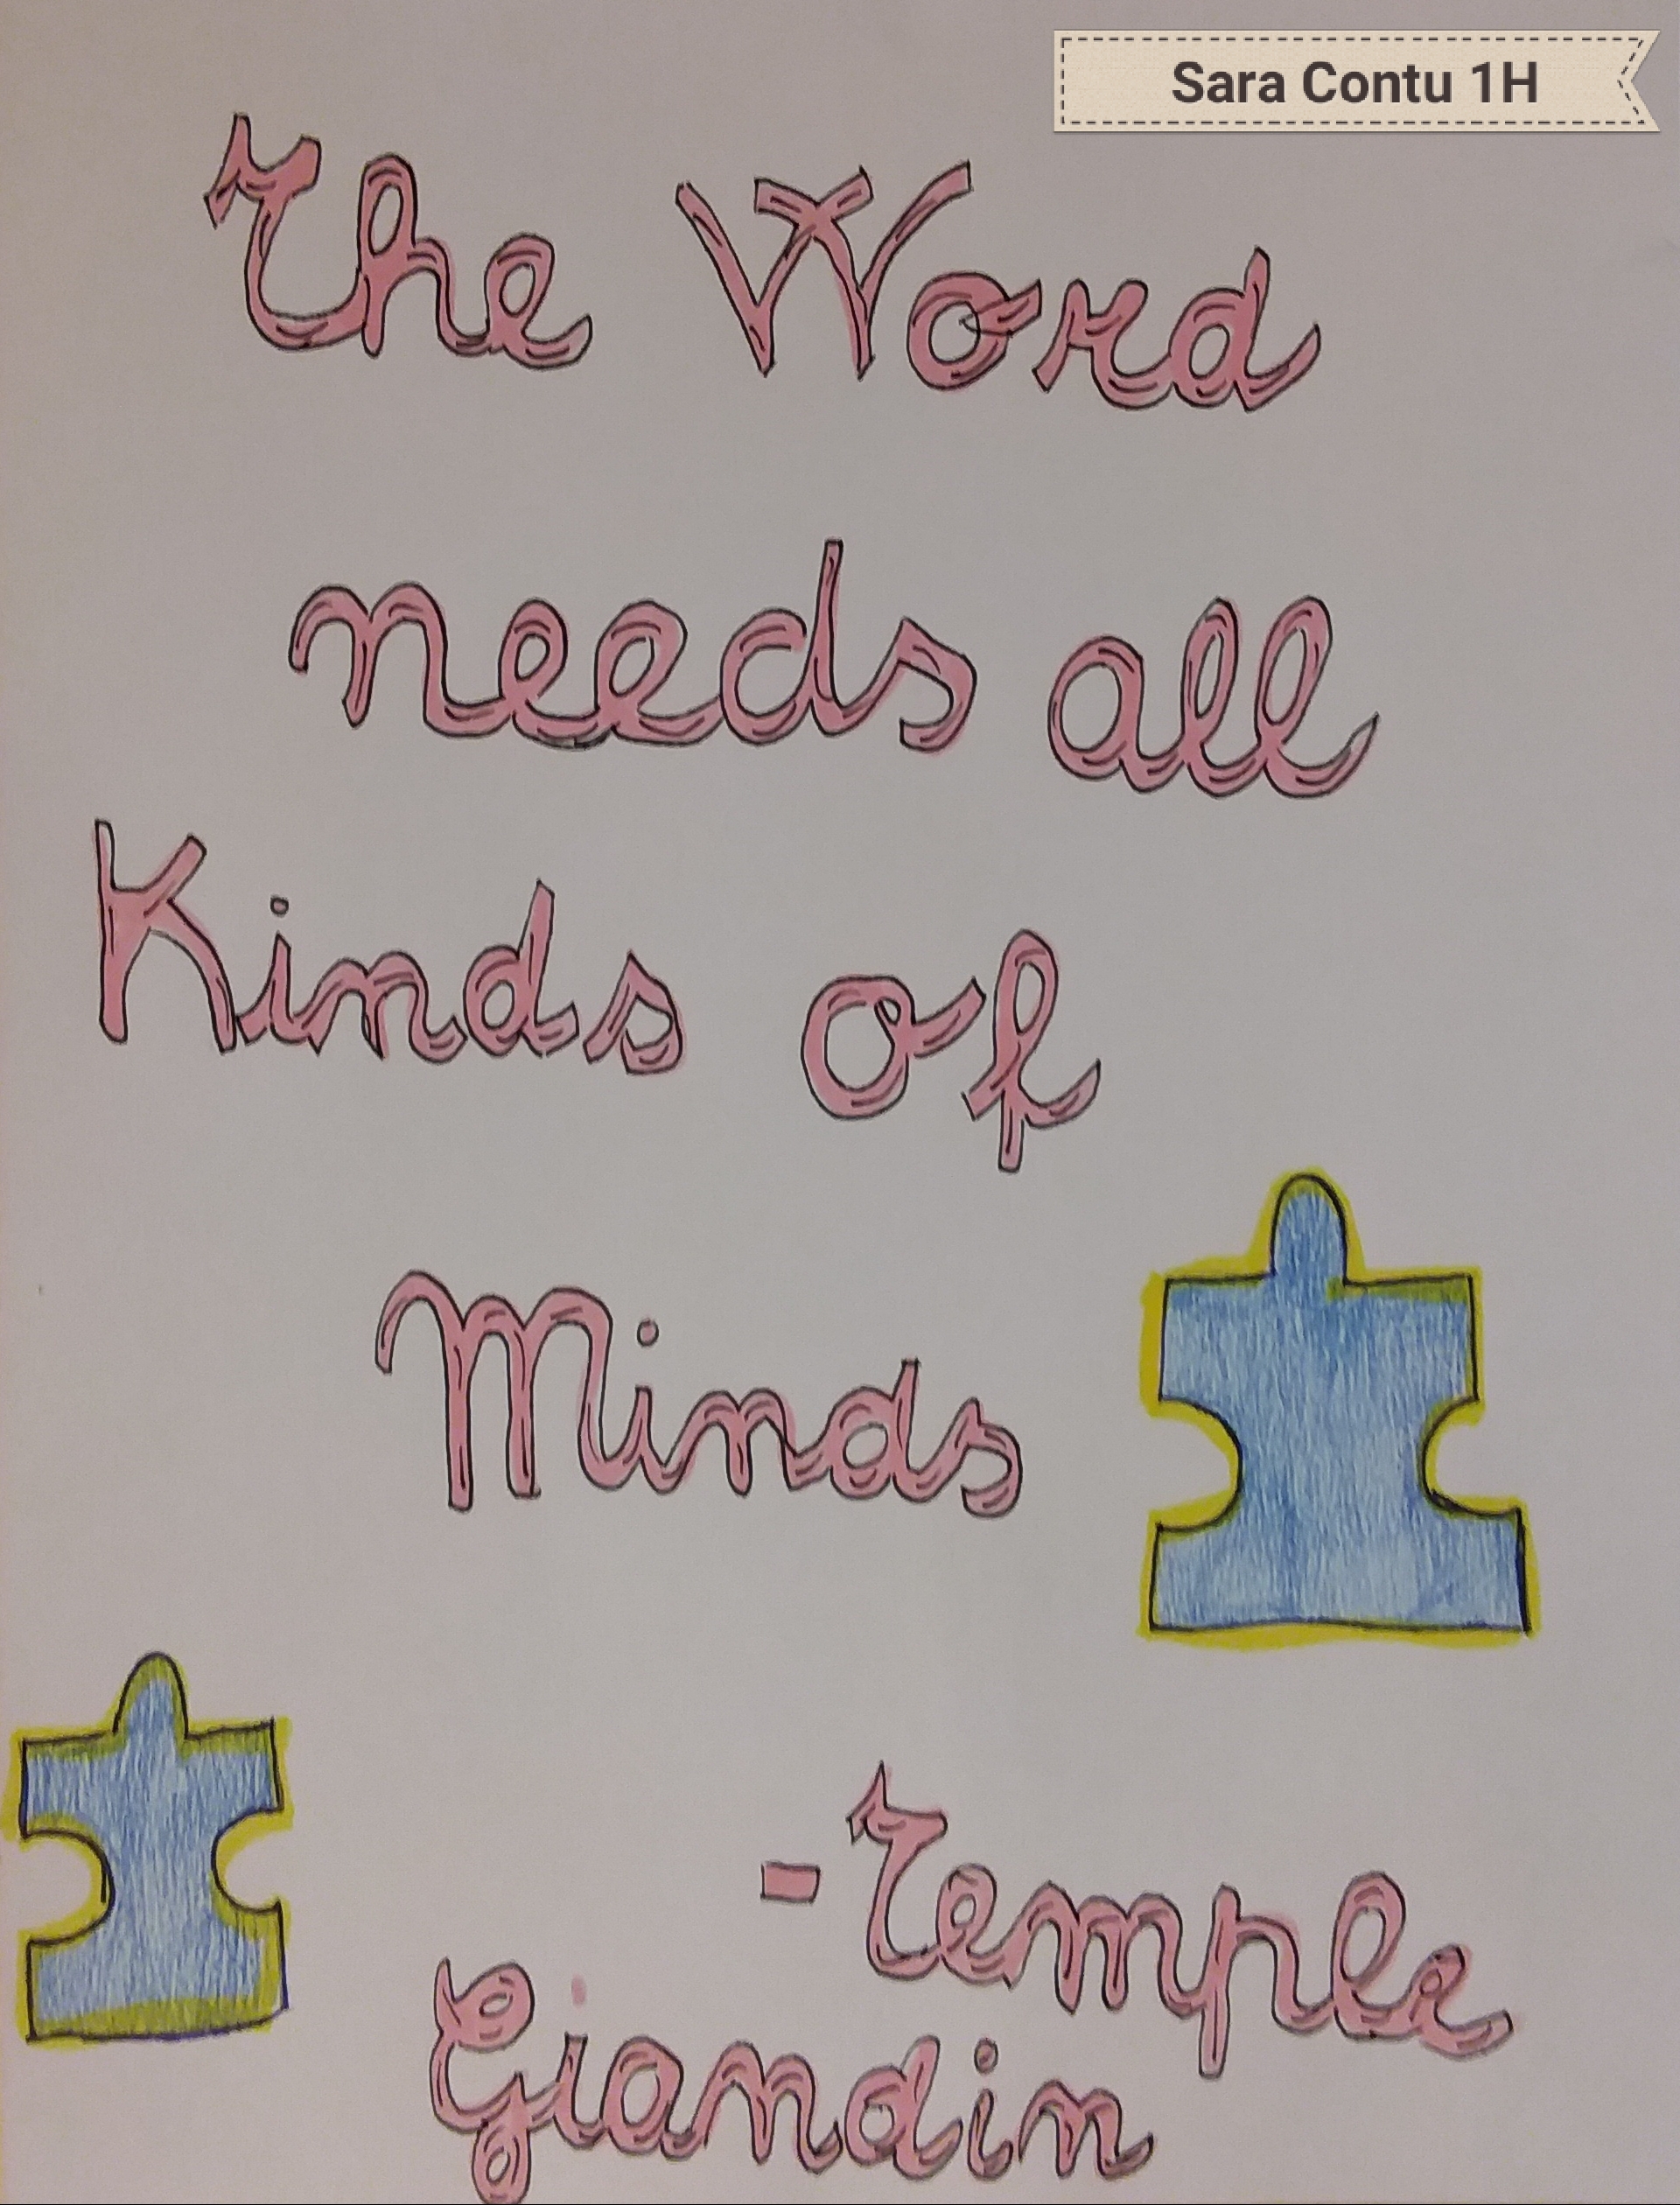 Sara Contu 1H
The Word
needs all
Kinds of
Minds
-Temple
Giandin